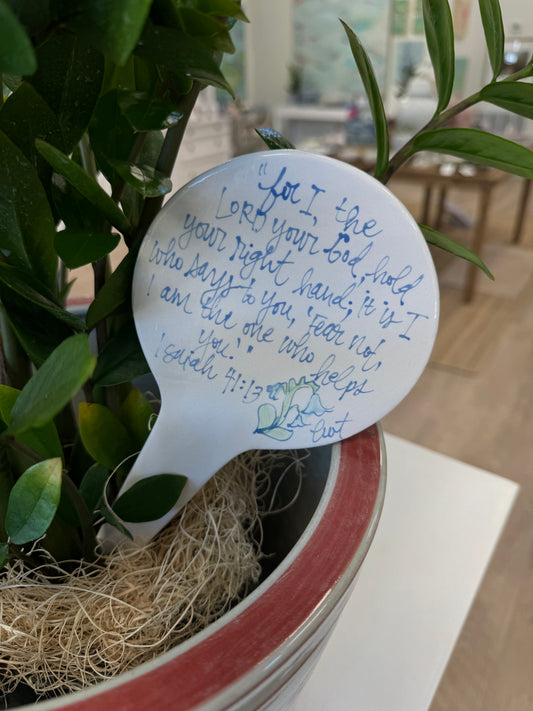 "for I, the
LORD your God, hold
your right hand; it is I
who says to you, 'Fear not,
I am the one who helps
you.'"
Isaiah 41:13